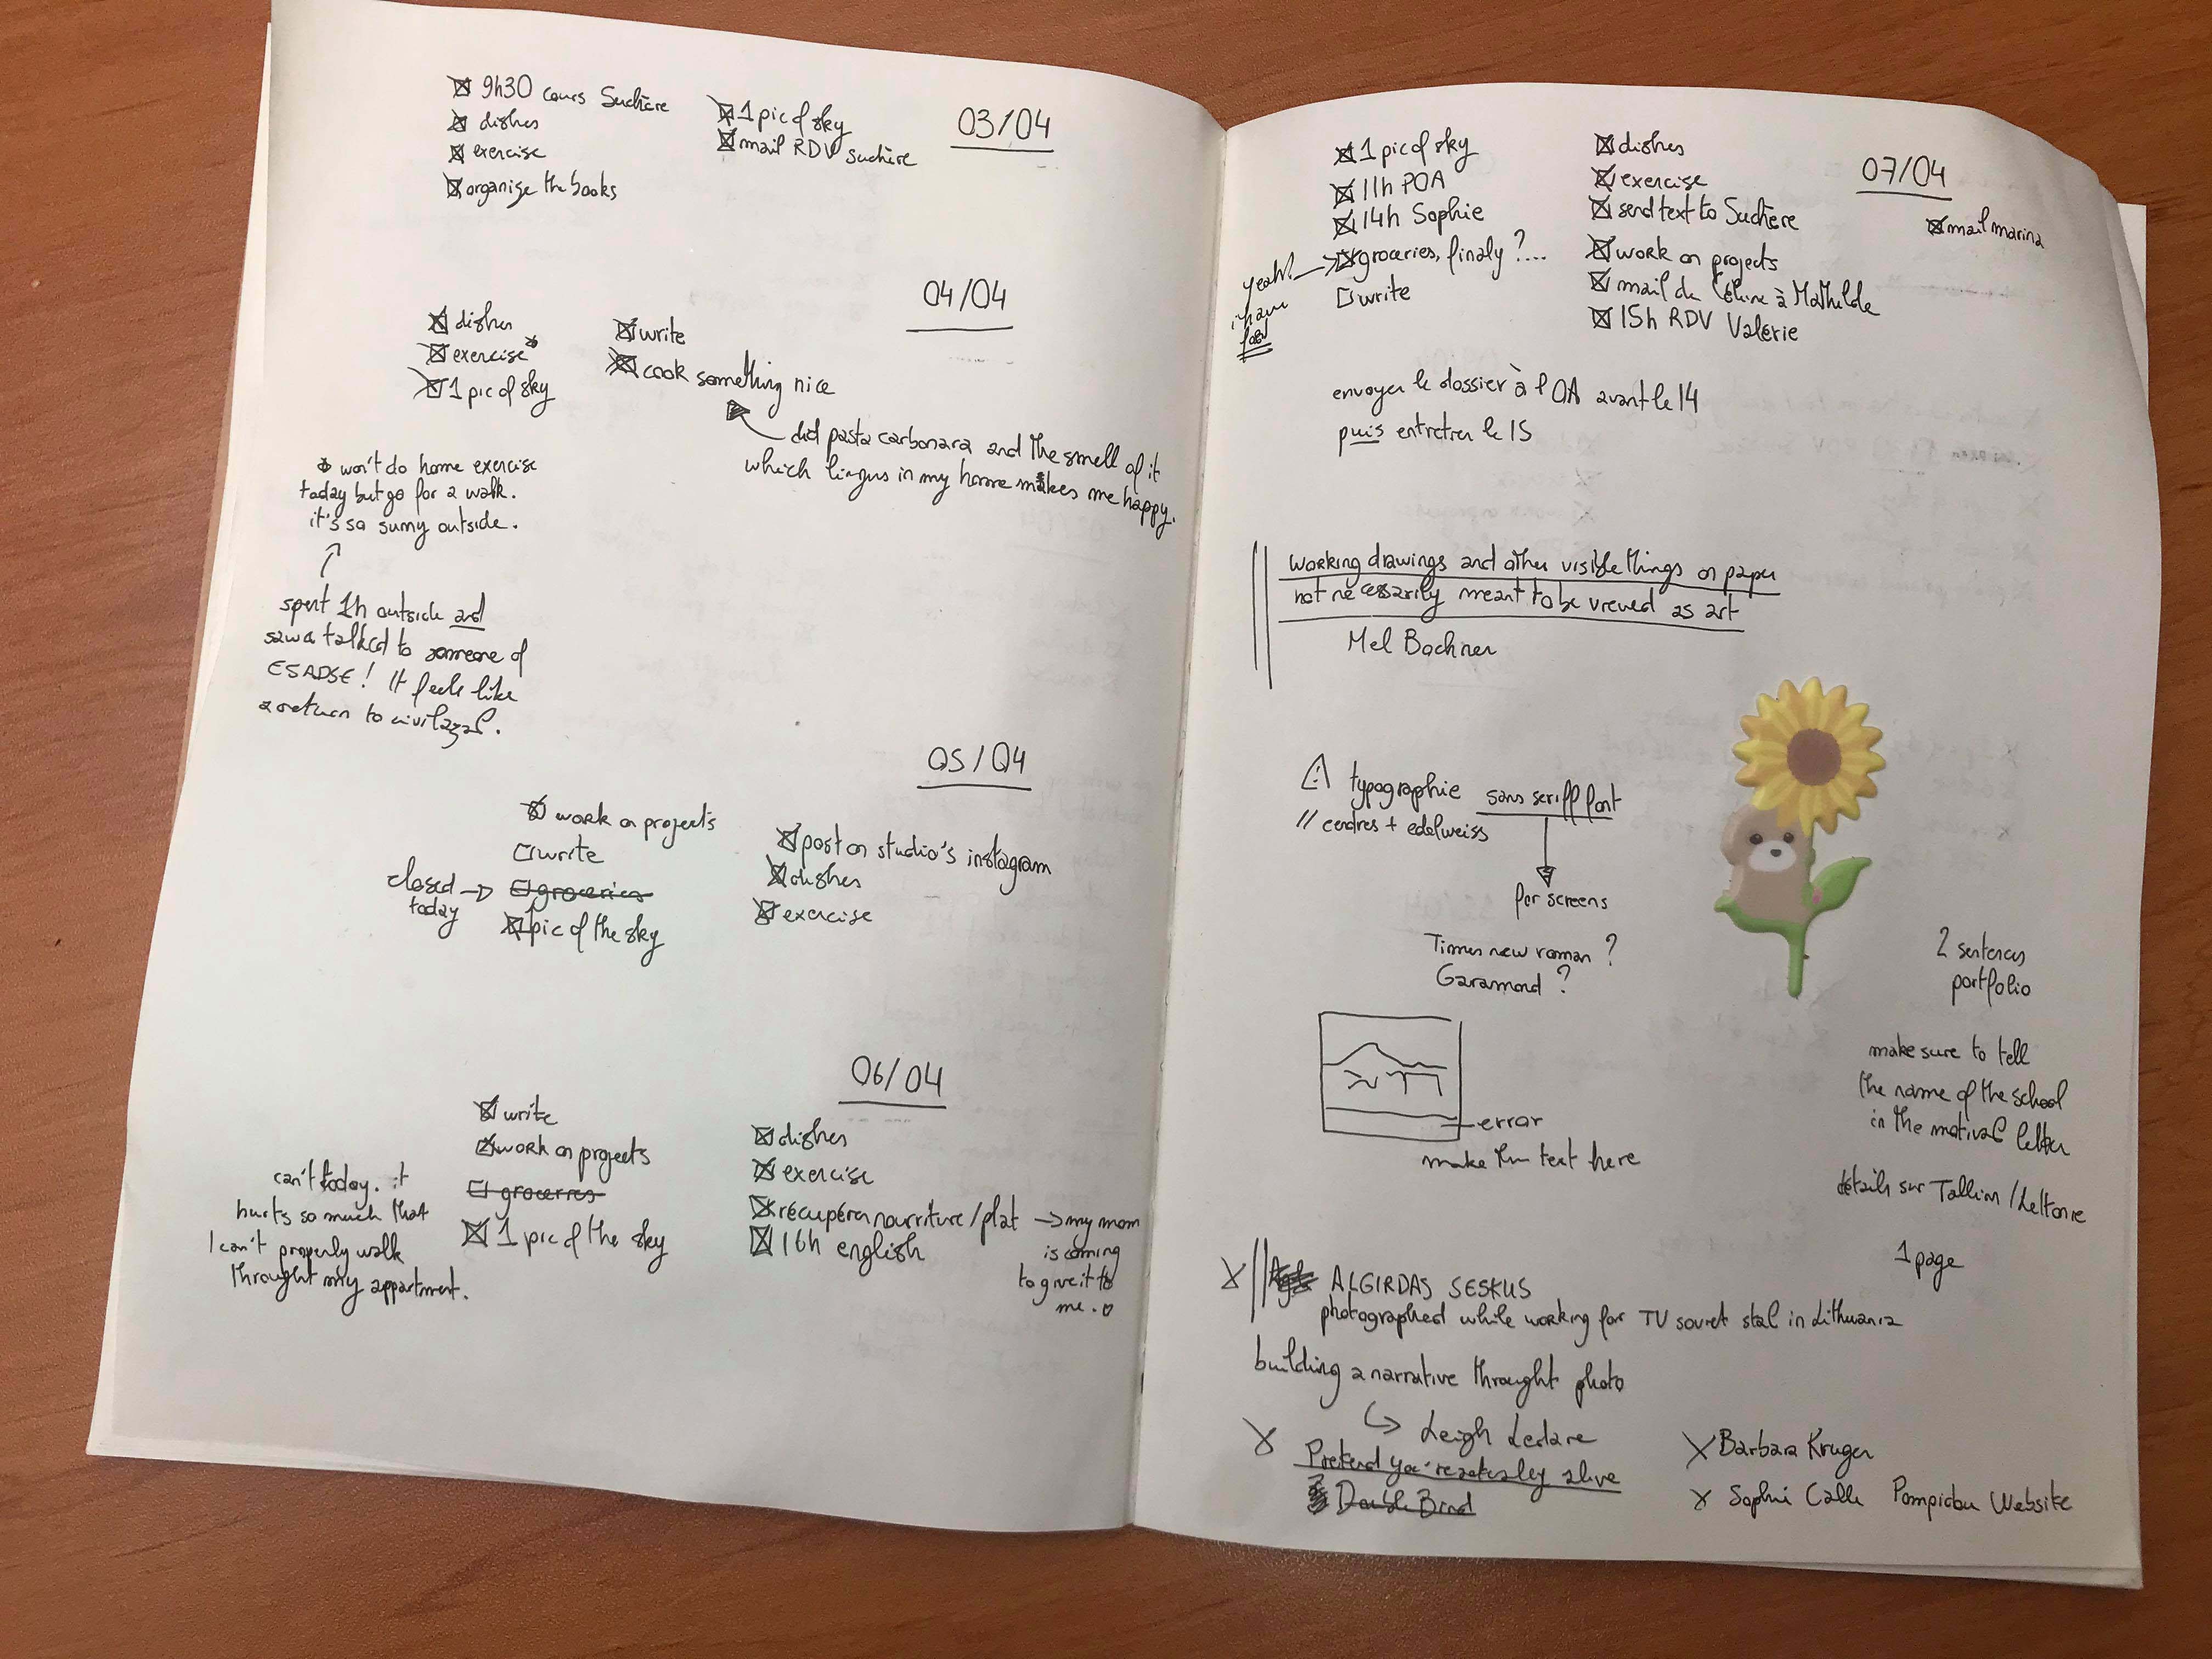 03/04
9h30 cours Suchère
dishes
exercise
organize the books
1 pic of sky
mail RDV suchère
04/04
dishes
exercise*
1 pic of sky
write
cook something nice
did pasta carbonara and the smell of it
which lingus in my home makes me happy.
* won't do home exercise
today but go for a walk.
it's so sunny outside.
spent 1h outside and
talked to someone of
ESADSE! It feels like
a return to
05/04
work on projects
write
closed today → groceries
1 pic of the sky
post on studio's instagram
dishes
exercise
06/04
write
work on projects
groceries
1 pic of the sky
can't today. it
hurts so much that
I can't properly walk
throught my appartment.
dishes
exercise
récupérer nourriture/plat → my mom
is coming
to give it to
me. ♡
16h english
07/04
1 pic of sky
11h POA
14h Sophie
yeah! → groceries, finaly ?...
i have
write
dishes
exercise
send text to Suchère
work on projects
mail de Céline à Mathilde
15h RDV Valérie
mail marina
envoyer le dossier à POA avant le 14
puis entretien le 15
working drawings and other visible things on paper
not necessarily meant to be viewed as art
Mel Bochner
typographie sans seriff font
// cendres + edelweiss
for screens
Times new roman ?
Garamond ?
error
make the text here
2 sentences
portfolio
make sure to tell
the name of the school
in the letter
détails sur Tallinn / Lettonie
1 page
ALGIRDAS SESKUS
photographed while working for TV soviet in Lithuania
building a narrative throught photo
↳ Leigh Ledare
Pretend you're actually alive
Double Bind
x Barbara Kruger
x Sophie Calle Pompidou Website